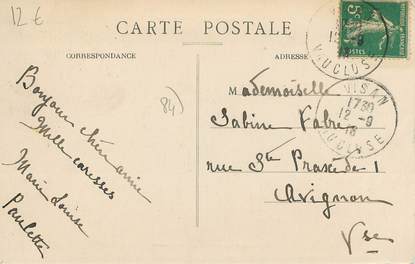 12 €
CARTE POSTALE
CORRESPONDANCE
ADRESSE
5c
VAUCLUSE
VISAN
17 30
12-9
VAUCLUSE
84)
Bonjour chère amie
Mille caresses
Marie Louise
Paulette
Mademoiselle
Sabine Fabre
rue Ste Praxède 1
Avignon
Vse